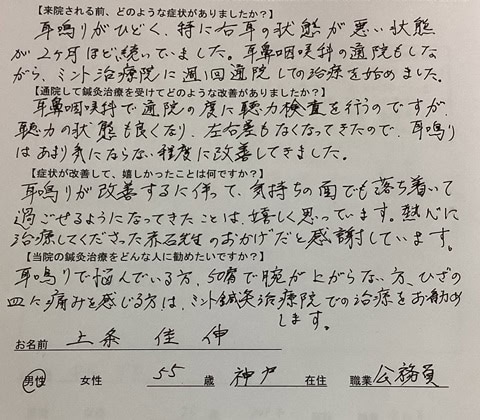 【来院される前、どのような症状がありましたか？】
耳鳴りがひどく、特に右耳の状態が悪い状態
が2ヶ月ほど続いていました。耳鼻咽喉科の通院もしな
がら、ミント治療院に週1回通院しての治療を始めました。
【通院して鍼灸治療を受けてどのような改善がありましたか？】
耳鼻咽喉科で通院の度に聴力検査を行うのですが、
聴力の状態も良くなり、左右差もなくなってきたので、耳鳴り
はあまり気にならない程度に改善してきました。
【症状が改善して、嬉しかったことは何ですか？】
耳鳴りが改善するに伴って、気持ちの面でも落ち着いて
過ごせるようになってきたことは、嬉しく思っています。熱心に
治療してくださった赤石先生のおかげだと感謝しています。
【当院の鍼灸治療をどんな人に勧めたいですか？】
耳鳴りで悩んでいる方、50肩で腕が上がらない方、ひざの
皿に痛みを感じる方は、ミント鍼灸治療院での治療をお勧め
します。
お名前 上条 佳伸
男性 女性 55 歳 神戸 在住 職業 公務員